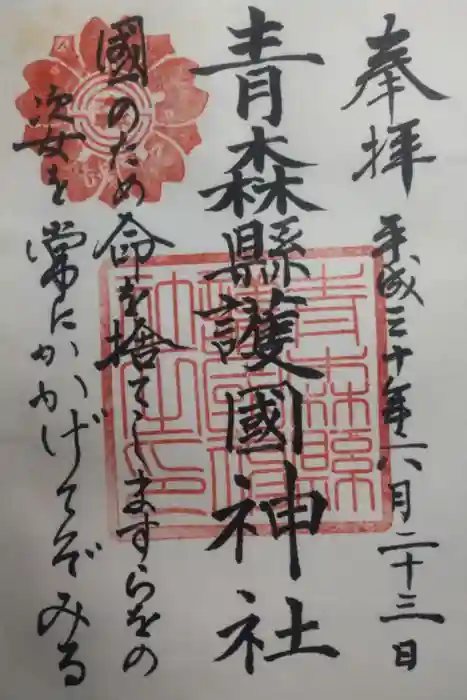 奉拝
平成三十年六月二十三日
青森縣護國神社
青森縣護國神社之印
國のため命を捨てしますらをの
次女を常にかかげてぞみる